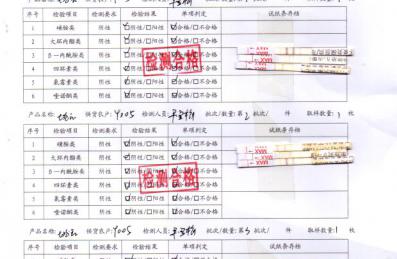 序号 检验项目 检测要求 检验结果 单项判定 试纸条存档
1 磺胺类 阴性 ☑阴性/□阳性 ☑合格/□不合格
2 大环内酯类 阴性 ☑阴性/□阳性 ☑合格/□不合格
3 β一内酰胺类 阴性 阴性/□阳性 ☑合格/□不合格
4 四环素类 阴性 阴性/□阳性 ☑合格/□不合格
5 氯霉素类 阴性 ☑阴性/□阳性 ☑合格/□不合格
6 喹诺酮类 阴性 ☑阴性/□阳性 ☑合格/□不合格
检测合格
产品名称: 供货农户: Y005 检测人员: 批次/数量: 第2批次/ 件 取样数量: 1 枚
序号 检验项目 检测要求 检验结果 单项判定 试纸条存档
1 磺胺类 阴性 ☑阴性/□阳性 ☑合格/□不合格
2 大环内酯类 阴性 ☑阴性/□阳性 ☑合格/□不合格
3 β一内酰胺类 阴性 阴性/□阳性 ☑合格/□不合格
4 四环素类 阴性 阴性/□阳性 ☑合格/□不合格
5 氯霉素类 阴性 ☑阴性/□阳性 ☑合格/□不合格
6 喹诺酮类 阴性 ☑阴性/□阳性 ☑合格/□不合格
检测合格
MAX
MAX
产品名称: 供货农户: Y005 检测人员: 批次/数量: 第3批次/ 件 取样数量: 1 枚
序号 检验项目 检测要求 检验结果 单项判定 试纸条存档
1 磺胺类 阴性 ☑阴性/□阳性 ☑合格/□不合格